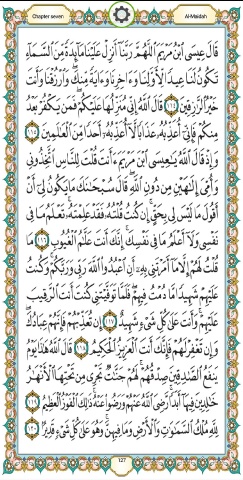 Chapter seven
Al-Maidah
قَالَ عِيسَى ابْنُ مَرْيَمَ اللَّهُمَّ رَبَّنَا أَنزِلْ عَلَيْنَا مَائِدَةً مِّنَ السَّمَاءِ
تَكُونُ لَنَا عِيدًا لِّأَوَّلِنَا وَءَاخِرِنَا وَءَايَةً مِّنكَ وَارْزُقْنَا وَأَنتَ
خَيْرُ الرَّازِقِينَ ١١٤ قَالَ اللَّهُ إِنِّي مُنَزِّلُهَا عَلَيْكُمْ فَمَن يَكْفُرْ بَعْدُ
مِنكُمْ فَإِنِّي أُعَذِّبُهُ عَذَابًا لَّا أُعَذِّبُهُ أَحَدًا مِّنَ الْعَالَمِينَ ١١٥
وَإِذْ قَالَ اللَّهُ يَاعِيسَى ابْنَ مَرْيَمَ ءَأَنتَ قُلْتَ لِلنَّاسِ اتَّخِذُونِي
وَأُمِّيَ إِلَاهَيْنِ مِن دُونِ اللَّهِ قَالَ سُبْحَانَكَ مَا يَكُونُ لِي أَنْ
أَقُولَ مَا لَيْسَ لِي بِحَقٍّ إِن كُنتُ قُلْتُهُ فَقَدْ عَلِمْتَهُ تَعْلَمُ مَا فِي
نَفْسِي وَلَا أَعْلَمُ مَا فِي نَفْسِكَ إِنَّكَ أَنتَ عَلَّامُ الْغُيُوبِ ١١٦ مَا
قُلْتُ لَهُمْ إِلَّا مَا أَمَرْتَنِي بِهِ أَنِ اعْبُدُوا اللَّهَ رَبِّي وَرَبَّكُمْ وَكُنتُ
عَلَيْهِمْ شَهِيدًا مَّا دُمْتُ فِيهِمْ فَلَمَّا تَوَفَّيْتَنِي كُنتَ أَنتَ الرَّقِيبَ
عَلَيْهِمْ وَأَنتَ عَلَى كُلِّ شَيْءٍ شَهِيدٌ ١١٧ إِن تُعَذِّبْهُمْ فَإِنَّهُمْ عِبَادُكَ
وَإِن تَغْفِرْ لَهُمْ فَإِنَّكَ أَنتَ الْعَزِيزُ الْحَكِيمُ ١١٨ قَالَ اللَّهُ هَذَا يَوْمُ
يَنفَعُ الصَّادِقِينَ صِدْقُهُمْ لَهُمْ جَنَّاتٌ تَجْرِي مِن تَحْتِهَا الْأَنْهَارُ
خَالِدِينَ فِيهَا أَبَدًا رَّضِيَ اللَّهُ عَنْهُمْ وَرَضُوا عَنْهُ ذَلِكَ الْفَوْزُ الْعَظِيمُ ١١٩
لِلَّهِ مُلْكُ السَّمَاوَاتِ وَالْأَرْضِ وَمَا فِيهِنَّ وَهُوَ عَلَى كُلِّ شَيْءٍ قَدِيرٌ ١٢٠
127